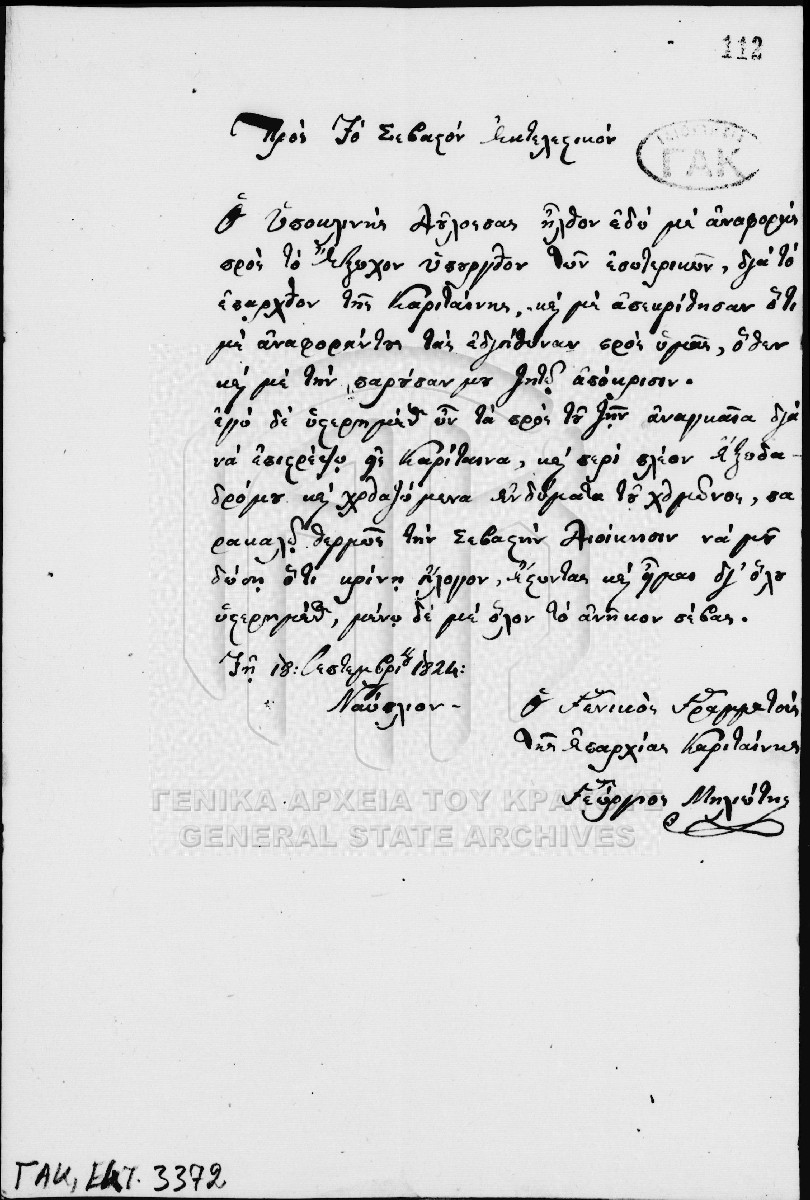 112
Πρὸς Τὸ Σεβαστὸν Ἐκτελεστικόν
ΓΑΚ
Ὁ ὑποκλινὴς ἦλθον ἐδῶ μὲ ἀναφορὰς
πρὸς τὸ Ἔξοχον ὑπουργεῖον τῶν ἐσωτερικῶν, διὰ τὸ
ἐπαρχεῖον τῆς Καριταίνης, καὶ μὲ ἀπεκρίθησαν ὅτι
μὲ ἀναφοράν τους τὰς ἐδιεύθυναν πρὸς ὑμᾶς, ὅθεν
καὶ μὲ τὴν παροῦσαν μου ζητῶ ἀπόκρισιν.
ἐγὼ δὲ ὑστερημένος ὢν τὰ πρὸς τὸ ζῆν ἀναγκαῖα διὰ
νὰ ἐπιστρέψω εἰς Καρίταινα, καὶ περὶ πλέον ἔξοδα
δρόμου καὶ χρειαζόμενα ἐνδύματα τοῦ χειμῶνος, πα
ρακαλῶ θερμῶς τὴν Σεβαστὴν Διοίκησιν νὰ μοῦ
δώσῃ ὅτι κρίνῃ εὔλογον, ἔχοντας καὶ δι' ὅλου
ὑστερημένος, μένω δὲ μὲ ὅλον τὸ ἀνῆκον σέβας.
Τῇ 18: Σεπτεμβρίου 1824:
Ναύπλιον -
Ὁ Γενικὸς Γραμματεὺς
τῆς Ἐπαρχίας Καριταίνης
Γεώργιος Μηλιώτης
ΓΕΝΙΚΑ ΑΡΧΕΙΑ ΤΟΥ ΚΡΑΤΟΥΣ
GENERAL STATE ARCHIVES
ΓΑΚ, Εκτ. 3372